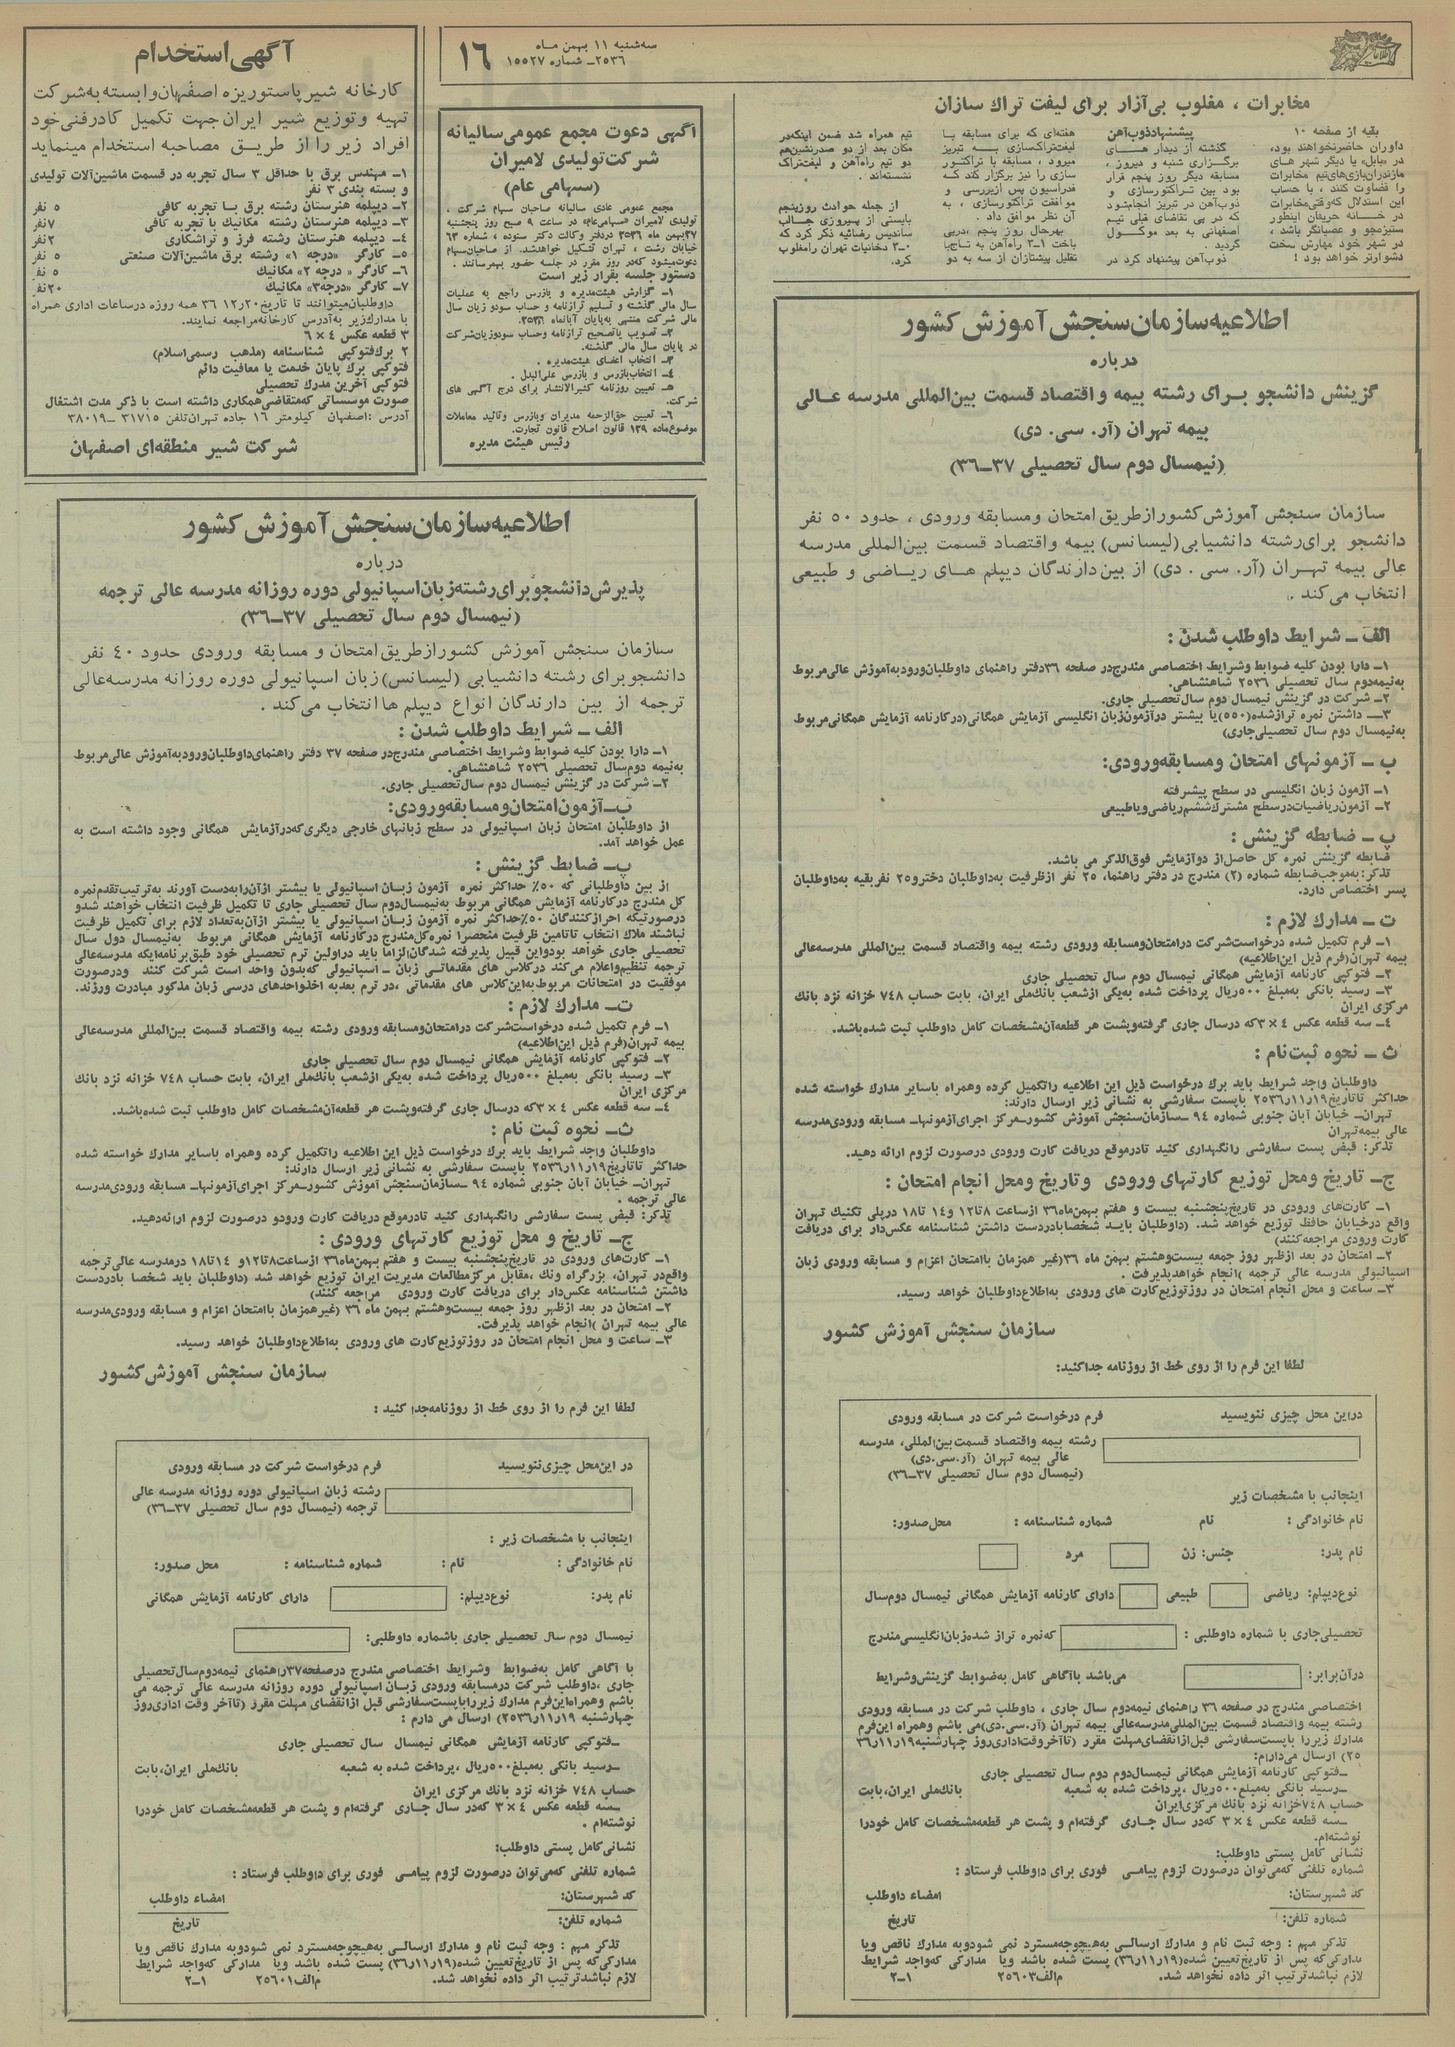 سه‌شنبه ۱۱ بهمن ماه
۲۵۳۶ـ شماره ۱۵۵۲۷
۱۶
مخابرات ، مغلوب بی‌آزار برای لیفت تراك سازان
بقیه از صفحه ۱۰
داوران حاضرنخواهند بود،
در «بابل» یا دیگر شهر های
مازندران‌بازی‌های‌تیم مخابرات
را قضاوت کنند ، با حساب
این استدلال که‌وقتی‌مخابرات
در خانه حریفان اینطور
ستیزه‌جو و عصبانگر باشد ،
در شهر خود مهارش سخت
دشوارتر خواهد بود !
پیشنهاد‌ذوب‌آهن
گذشته از دیدار های
برگزاری شنبه و دیروز ،
مسابقه دیگر روز پنجم قرار
بود بین تراکتورسازی و
ذوب‌آهن در تبریز انجام‌شود
که در پی تقاضای قبلی تیم
اصفهانی به بعد موکول
گردید .
ذوب‌آهن پیشنهاد کرد در
هفته‌ای که برای مسابقه با
لیفت‌تراکسازی به تبریز
میرود ، مسابقه با تراکتور
سازی را نیز برگزار کند که
فدراسیون پس ازبررسی و
موافقت تراکتورسازی ، به
آن نظر موافق داد .
بهرحال روز پنجم ،درپی
باخت ۱ـ۳ راه‌آهن به تاج‌با
تقلیل پیشتازان از سه به دو
تیم همراه شد ضمن اینکه‌در
مکان بعد از دو صدرنشین‌هم
دو تیم راه‌آهن و لیفت‌تراك
نشسته‌اند .
از جمله حوادث روزپنجم
بایستی از پیروزی جالب
ساندیس رضائیه ذکر کرد که
۰ـ۳ دخانیات تهران رامغلوب
کرد.
آگهی استخدام
کارخانه شیر پاستوریزه اصفهان‌وابسته به‌شرکت
تهیه و توزیع شیر ایران جهت تکمیل کادر فنی خود
افراد زیر را از طریق مصاحبه استخدام مینماید
۱ـ مهندس برق با حداقل ۳ سال تجربه در قسمت ماشین‌آلات تولیدی
و بسته بندی ۳ نفر
۲ـ دیپلمه هنرستان رشته برق با تجربه کافی ۵ نفر
۳ـ دیپلمه هنرستان رشته مکانیك با تجربه کافی ۷نفر
۴ـ دیپلمه هنرستان رشته فرز و تراشکاری ۲نفر
۵ـ کارگر «درجه ۱» رشته برق ماشین‌آلات صنعتی ۵ نفر
۶ـ کارگر « درجه ۲» مکانیك ۵ نفر
۷ـ کارگر «درجه۳» مکانیك ۲۰نفر
داوطلبان‌میتوانند تا تاریخ۲۰ر۱۲ر ۳۶ همه روزه درساعات اداری همراه
با مدارك‌زیر به‌آدرس کارخانه‌مراجعه نمایند.
۳ قطعه عکس ۴ × ۶
۲ برك فتوکپی شناسنامه (مذهب رسمی‌اسلام)
فتوکپی برك پایان خدمت یا معافیت دائم
فتوکپی آخرین مدرك تحصیلی
صورت موسساتی که‌متقاضی‌همکاری داشته است با ذکر مدت اشتغال
آدرس :اصفهان کیلومتر ۱۶ جاده تهران‌تلفن ۳۱۷۱۵ ـ۳۸۰۱۹
شرکت شیر منطقه‌ای اصفهان
آگهی دعوت مجمع عمومی سالیانه
شرکت تولیدی لامیران
(سهامی عام)
مجمع عمومی عادی سالیانه صاحبان سهام شرکت
تولیدی لامیران «سهامی‌عام» در ساعت ۹ صبح روز پنجشنبه
۲۷بهمن ماه ۲۵۳۶ دردفتر وکالت دکتر ستوده ، شماره ۶۳
خیابان رشت ، تهران تشکیل خواهدشد. از صاحبان‌سهام
دعوت‌میشود که‌در روز مقرر در جلسه حضور بهم‌رسانند .
دستور جلسه بقرار زیر است
۱ـ گزارش هیئت‌مدیره و بازرس راجع به عملیات
سال مالی گذشته و تسلیم ترازنامه و حساب سودو زیان سال
مالی شرکت منتهی به‌پایان آبانماه ۲۵۳۶.
۲ـ تصویب یاتصحیح ترازنامه وحساب سودوزیان‌شرکت
در پایان سال مالی گذشته.
۳ـ انتخاب اعضای هیئت‌مدیره .
۴ـ انتخاب‌بازرس و بازرس علی‌البدل .
۵ـ تعیین روزنامه کثیرالانتشار برای درج آگهی های
شرکت.
۶ـ تعیین حق‌الزحمه مدیران وبازرس وتائید معاملات
موضوع‌ماده ۱۲۹ قانون اصلاح قانون تجارت.
رئیس هیئت مدیره
اطلاعیه سازمان سنجش آموزش کشور
درباره
گزینش دانشجو برای رشته بیمه و اقتصاد قسمت بین‌المللی مدرسه عالی
بیمه تهران (آر. سی. دی)
(نیمسال دوم سال تحصیلی ۳۷ـ۳۶)
سازمان سنجش آموزش کشور ازطریق امتحان ومسابقه ورودی ، حدود ۵۰ نفر
دانشجو برای رشته دانشیابی (لیسانس) بیمه واقتصاد قسمت بین‌المللی مدرسه
عالی بیمه تهران (آر. سی . دی) از بین دارندگان دیپلم های ریاضی و طبیعی
انتخاب می‌کند .
الف ـ شرایط داوطلب شدن :
۱ـ دارا بودن کلیه ضوابط وشرایط اختصاصی مندرج‌در صفحه ۳۶دفتر راهنمای داوطلبان‌ورودبه‌آموزش عالی‌مربوط
به‌نیمه‌دوم سال تحصیلی ۲۵۳۶ شاهنشاهی.
۲ـ شرکت در گزینش نیمسال دوم سال‌تحصیلی جاری.
۳ـ داشتن نمره ترازشده(۵۵۰)یا بیشتر درآزمون‌زبان انگلیسی آزمایش همگانی(درکارنامه آزمایش همگانی‌مربوط
به‌نیمسال دوم سال تحصیلی‌جاری)
ب ـ آزمونهای امتحان ومسابقه‌ورودی:
۱ـ آزمون زبان انگلیسی در سطح پیشرفته
۲ـ آزمون‌ریاضیات‌درسطح مشترك‌ششم‌ریاضی‌ویاطبیعی
پ ـ ضابطه گزینش :
ضابطه گزینش نمره کل حاصل‌از دوآزمایش فوق‌الذکر می باشد.
تذکر:به‌موجب‌ضابطه شماره (۲) مندرج در دفتر راهنما، ۲۵ نفر ازظرفیت به‌داوطلبان دخترو۲۵ نفربقیه به‌داوطلبان
پسر اختصاص دارد.
ت ـ مدارك لازم :
۱ـ فرم تکمیل شده درخواست‌شرکت درامتحان‌ومسابقه ورودی رشته بیمه واقتصاد قسمت بین‌المللی مدرسه‌عالی
بیمه تهران(فرم ذیل این‌اطلاعیه)
۲ـ فتوکپی کارنامه آزمایش همگانی نیمسال دوم سال تحصیلی جاری
۳ـ رسید بانکی به‌مبلغ ۵۰۰ریال پرداخت شده به‌یکی ازشعب بانك‌ملی ایران، بابت حساب ۷۴۸ خزانه نزد بانك
مرکزی ایران
۴ـ سه قطعه عکس ۴ × ۳که درسال جاری گرفته‌وپشت هر قطعه‌آن‌مشخصات کامل داوطلب ثبت شده‌باشد.
ث ـ نحوه ثبت‌نام :
داوطلبان واجد شرایط باید برك درخواست ذیل این اطلاعیه راتکمیل کرده وهمراه باسایر مدارك خواسته شده
حداکثر تاتاریخ۱۹ر۱۱ر۲۵۳۶ باپست سفارشی به نشانی زیر ارسال دارند:
تهران‌ـ خیابان آبان جنوبی شماره ۹۴ ـسازمان‌سنجش آموزش کشورـ‌مرکز اجرای‌آزمونهاـ مسابقه ورودی‌مدرسه
عالی بیمه‌تهران
تذکر: قبض پست سفارشی رانگهداری کنید تادرموقع دریافت کارت ورودی درصورت لزوم ارائه دهید.
ج ـ تاریخ ومحل توزیع کارتهای ورودی و تاریخ ومحل انجام امتحان :
۱ـ کارت‌های ورودی در تاریخ‌پنجشنبه بیست و هفتم بهمن‌ماه۳۶ ازساعت ۸تا۱۲ و۱۴ تا۱۸ درپلی تکنیك تهران
واقع درخیابان حافظ توزیع خواهد شد. (داوطلبان باید شخصابادردست داشتن شناسنامه عکس‌دار برای دریافت
کارت ورودی مراجعه‌کنند)
۲ـ امتحان در بعد ازظهر روز جمعه بیست‌وهشتم بهمن ماه ۳۶(غیر همزمان باامتحان اعزام و مسابقه ورودی زبان
اسپانیولی مدرسه عالی ترجمه )انجام خواهدپذیرفت .
۳ـ ساعت و محل انجام امتحان در روزتوزیع‌کارت های ورودی به‌اطلاع‌داوطلبان خواهد رسید.
سازمان سنجش آموزش کشور
لطفا این فرم را از روی خط از روزنامه جداکنید:
دراین محل چیزی ننویسید
فرم درخواست شرکت در مسابقه ورودی
رشته بیمه واقتصاد قسمت‌بین‌المللی، مدرسه
عالی بیمه تهران (آر.سی.دی)
(نیمسال دوم سال تحصیلی ۳۷ـ۳۶)
اینجانب با مشخصات زیر
نام خانوادگی : نام شماره شناسنامه : محل‌صدور:
نام پدر: جنس: زن مرد
نوع‌دیپلم: ریاضی طبیعی دارای کارنامه آزمایش همگانی نیمسال دوم‌سال
تحصیلی‌جاری با شماره داوطلبی : که‌نمره تراز شده‌زبان‌انگلیسی‌مندرج
درآن‌برابر: می‌باشد باآگاهی کامل به‌ضوابط گزینش‌وشرایط
اختصاصی مندرج در صفحه ۳۶ راهنمای نیمه‌دوم سال جاری ، داوطلب شرکت در مسابقه ورودی
رشته بیمه واقتصاد قسمت بین‌المللی‌مدرسه‌عالی بیمه تهران (آر.سی.دی)می باشم وهمراه این‌فرم
مدارك زیررا باپست‌سفارشی قبل‌ازانقضای‌مهلت مقرر (تاآخروقت‌اداری‌روز چهارشنبه۱۹ر۱۱ر۳۶
۲۵) ارسال می‌دارم:
ـفتوکپی کارنامه آزمایش همگانی نیمسال‌دوم دوم سال تحصیلی جاری
ـرسید بانکی به‌مبلغ۵۰۰ریال ،پرداخت شده به شعبه بانك‌ملی ایران،بابت
حساب ۷۴۸خزانه نزد بانك مرکزی‌ایران
ـسه قطعه عکس ۴ × ۳ که‌در سال جاری گرفته‌ام و پشت هر قطعه‌مشخصات کامل خودرا
نوشته‌ام.
نشانی کامل پستی داوطلب:
شماره تلفنی که‌می‌توان درصورت لزوم پیامی فوری برای داوطلب فرستاد :
کد شهرستان: امضاء داوطلب
شماره تلفن: تاریخ
تذکر مهم : وجه ثبت نام و مدارك ارسالی به‌هیچوجه‌مسترد نمی شودوبه مدارك ناقص ویا
مدارکی‌که پس از تاریخ‌تعیین شده(۱۹ر۱۱ر۳۶) پست شده باشد ویا مدارکی که‌واجد شرایط
لازم نباشدترتیب اثر داده نخواهد شد. م‌الف۲۵۶۰۳ ۱ـ۲
اطلاعیه سازمان سنجش آموزش کشور
درباره
پذیرش دانشجو برای رشته زبان اسپانیولی دوره روزانه مدرسه عالی ترجمه
(نیمسال دوم سال تحصیلی ۳۷ـ۳۶)
سازمان سنجش آموزش کشور ازطریق امتحان و مسابقه ورودی حدود ۴۰ نفر
دانشجو برای رشته دانشیابی (لیسانس) زبان اسپانیولی دوره روزانه مدرسه‌عالی
ترجمه از بین دارندگان انواع دیپلم ها انتخاب می‌کند .
الف ـ شرایط داوطلب شدن :
۱ـ دارا بودن کلیه ضوابط وشرایط اختصاصی مندرج‌در صفحه ۳۷ دفتر راهنمای‌داوطلبان‌ورودبه‌آموزش عالی‌مربوط
به‌نیمه دوم‌سال تحصیلی ۲۵۳۶ شاهنشاهی.
۲ـ شرکت در گزینش نیمسال دوم سال‌تحصیلی جاری.
ب‌ـ آزمون امتحان‌ومسابقه‌ورودی:
از داوطلبان امتحان زبان اسپانیولی در سطح زبانهای خارجی دیگری‌که‌درآزمایش همگانی وجود داشته است به
عمل خواهد آمد.
پ‌ـ ضابط گزینش :
از بین داوطلبانی که ۵۰٪ حداکثر نمره آزمون زبان اسپانیولی یا بیشتر ازآن‌رابه‌دست آورند به‌ترتیب‌تقدم‌نمره
کل مندرج درکارنامه آزمایش همگانی مربوط به‌نیمسال‌دوم سال تحصیلی جاری تا تکمیل ظرفیت انتخاب خواهند شدو
درصورتیکه احرازکنندگان ۵۰٪حداکثر نمره آزمون زبان اسپانیولی یا بیشتر ازآن‌به‌تعداد لازم برای تکمیل ظرفیت
نباشند ملاك انتخاب تاتامین ظرفیت منحصرا نمره‌کل‌مندرج درکارنامه آزمایش همگانی مربوط به‌نیمسال دول سال
تحصیلی جاری خواهد بودواین قبیل پذیرفته شدگان‌الزاما باید دراولین ترم تحصیلی خود طبق‌برنامه‌ایکه مدرسه‌عالی
ترجمه تنظیم‌واعلام می‌کند درکلاس های مقدماتی زبان ـ اسپانیولی که‌بدون واحد است شرکت کنند ودرصورت
موفقیت در امتحانات مربوط به‌این‌کلاس های مقدماتی ،در ترم بعدبه اخذواحدهای درسی زبان مذکور مبادرت ورزند.
ت‌ـ مدارك لازم :
۱ـ فرم تکمیل شده درخواست‌شرکت درامتحان‌ومسابقه ورودی رشته بیمه واقتصاد قسمت بین‌المللی مدرسه‌عالی
بیمه تهران(فرم ذیل این‌اطلاعیه)
۲ـ فتوکپی کارنامه آزمایش همگانی نیمسال دوم سال تحصیلی جاری
۳ـ رسید بانکی به‌مبلغ ۵۰۰ریال پرداخت شده به‌یکی ازشعب بانك‌ملی ایران، بابت حساب ۷۴۸ خزانه نزد بانك
مرکزی ایران
۴ـ سه قطعه عکس ۴ × ۳که درسال جاری گرفته‌وپشت هر قطعه‌آن‌مشخصات کامل داوطلب ثبت شده‌باشد.
ث‌ـ نحوه ثبت نام :
داوطلبان واجد شرایط باید برك درخواست ذیل این اطلاعیه راتکمیل کرده وهمراه باسایر مدارك خواسته شده
حداکثر تاتاریخ۱۹ر۱۱ر۲۵۳۶ باپست سفارشی به نشانی زیر ارسال دارند:
تهران‌ـ خیابان آبان جنوبی شماره ۹۴ ـسازمان‌سنجش آموزش کشورـ‌مرکز اجرای‌آزمونهاـ مسابقه ورودی‌مدرسه
عالی ترجمه .
تذکر: قبض پست سفارشی رانگهداری کنید تادرموقع دریافت کارت ورودو درصورت لزوم ارائه‌دهید.
ج‌ـ تاریخ و محل توزیع کارتهای ورودی :
۱ـ کارت‌های ورودی در تاریخ‌پنجشنبه بیست و هفتم بهمن‌ماه ۳۶ ازساعت۸تا۱۲و ۱۴تا۱۸ درمدرسه عالی‌ترجمه
واقع‌در تهران، بزرگراه ونك ،مقابل مرکزمطالعات مدیریت ایران توزیع خواهد شد (داوطلبان باید شخصا بادردست
داشتن شناسنامه عکس‌دار برای دریافت کارت ورودی مراجعه کنند)
۲ـ امتحان در بعد ازظهر روز جمعه بیست‌وهشتم بهمن ماه ۳۶ (غیرهمزمان باامتحان اعزام و مسابقه ورودی‌مدرسه
عالی بیمه تهران )انجام خواهد پذیرفت.
۳ـ ساعت و محل انجام امتحان در روزتوزیع‌کارت های ورودی به‌اطلاع‌داوطلبان خواهد رسید.
سازمان سنجش آموزش کشور
لطفا این فرم را از روی خط از روزنامه‌جدا کنید :
در این‌محل چیزی‌ننویسید
فرم درخواست شرکت در مسابقه ورودی
رشته زبان اسپانیولی دوره روزانه مدرسه عالی
ترجمه (نیمسال دوم سال تحصیلی ۳۷ـ۳۶)
اینجانب با مشخصات زیر :
نام خانوادگی : نام : شماره شناسنامه : محل صدور:
نام پدر: نوع‌دیپلم: دارای کارنامه آزمایش همگانی
نیمسال دوم سال تحصیلی جاری باشماره داوطلبی:
با آگاهی کامل به‌ضوابط وشرایط اختصاصی مندرج درصفحه۳۷راهنمای نیمه‌دوم‌سال‌تحصیلی
جاری ،داوطلب شرکت درمسابقه ورودی زبان اسپانیولی دوره روزانه مدرسه عالی ترجمه می
باشم وهمراه‌این‌فرم مدارك زیررا باپست‌سفارشی قبل ازانقضای مهلت مقرر (تاآخر وقت اداری‌روز
چهارشنبه ۱۹ر۱۱ر۲۵۳۶) ارسال می دارم :
ـفتوکپی کارنامه آزمایش همگانی نیمسال سال تحصیلی جاری
ـرسید بانکی به‌مبلغ۵۰۰ریال ،پرداخت شده به شعبه بانك‌ملی ایران،بابت
حساب ۷۴۸ خزانه نزد بانك مرکزی ایران
ـسه قطعه عکس ۴ × ۳ که‌در سال جاری گرفته‌ام و پشت هر قطعه‌مشخصات کامل خودرا
نوشته‌ام .
نشانی‌کامل پستی داوطلب:
شماره تلفنی که‌می‌توان درصورت لزوم پیامی فوری برای داوطلب فرستاد :
کد شهرستان: امضاء داوطلب
شماره تلفن: تاریخ
تذکر مهم : وجه ثبت نام و مدارك ارسالی به‌هیچوجه‌مسترد نمی شودوبه مدارك ناقص ویا
مدارکی‌که پس از تاریخ‌تعیین شده(۱۹ر۱۱ر۳۶) پست شده باشد ویا مدارکی که‌واجد شرایط
لازم نباشدترتیب اثر داده نخواهد شد. م‌الف۲۵۶۰۱ ۱ـ۲